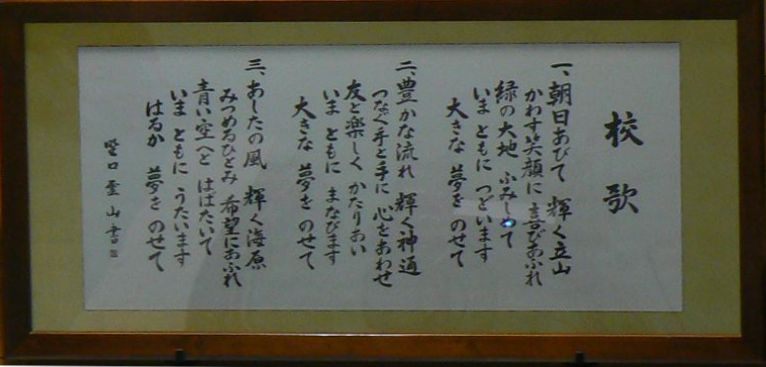 校歌
一、朝日あびて 輝く立山
かわす笑顔に 喜びあふれ
緑の大地 ふみしめて
いま ともに つどいます
大きな 夢を のせて
二、豊かな流れ 輝く神通
つなぐ手と手に 心をあわせ
友と楽しく かたりあい
いま ともに まなびます
大きな 夢を のせて
三、あしたの風 輝く海原
みつめるひとみ 希望にあふれ
青い空へと はばたいて
いま ともに うたいます
はるか 夢を のせて
口 山書